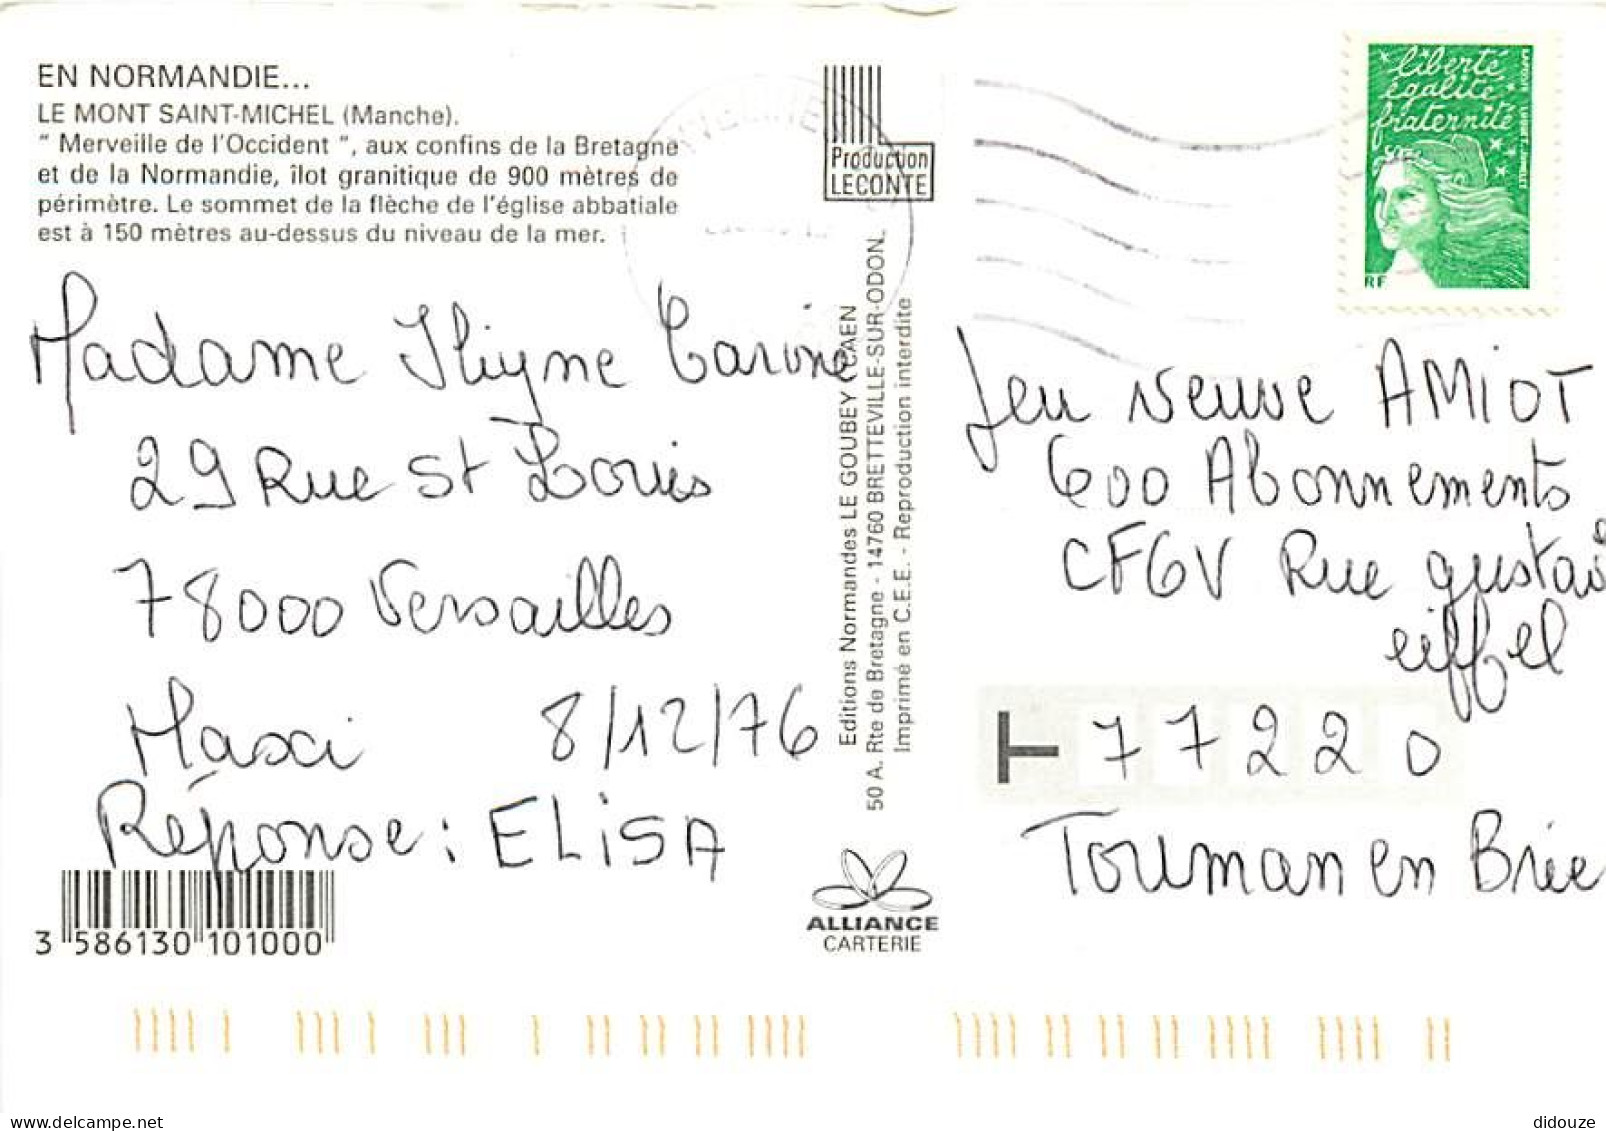 EN NORMANDIE...
LE MONT SAINT-MICHEL (Manche).
" Merveille de l'Occident ", aux confins de la Bretagne
et de la Normandie, îlot granitique de 900 mètres de
périmètre. Le sommet de la flèche de l'église abbatiale
est à 150 mètres au-dessus du niveau de la mer.
Madame Carine
29 Rue St Louis
78000 Versailles
Maxi 8/12/76
Réponse : ELISA
3 586130 101000
Production
LECONTE
Editions Normandes LE GOUBEY CAEN
50 A. Rte de Bretagne - 14760 BRETTEVILLE-SUR-ODON.
Imprimé en C.E.E. - Reproduction interdite
ALLIANCE
CARTERIE
liberté
égalité
fraternité
RF
LA POSTE
Jeu Neuve AMIOT
600 Abonnements
CFGV Rue gustav
eiffel
T 77220
Tournan en Brie
didouze